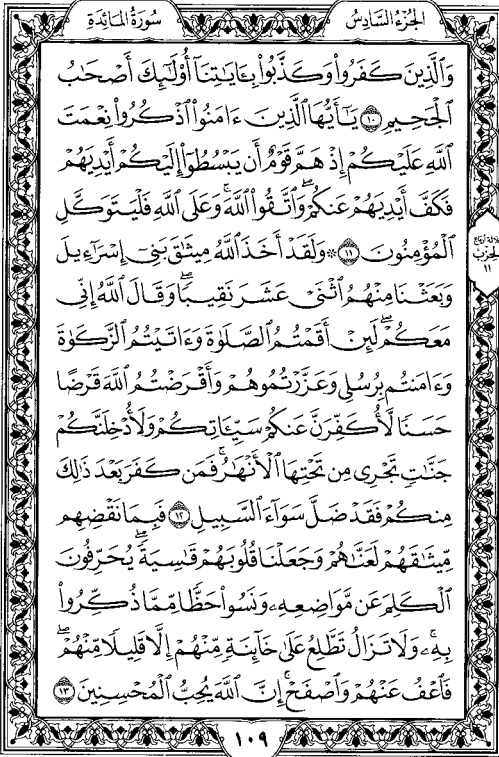 الجزء السادس
سورة المائدة
وَالَّذِينَ كَفَرُوا۟ وَكَذَّبُوا۟ بِـَٔايَـٰتِنَآ أُو۟لَـٰٓئِكَ أَصْحَـٰبُ
ٱلْجَحِيمِ ١٠ يَـٰٓأَيُّهَا ٱلَّذِينَ ءَامَنُوا۟ ٱذْكُرُوا۟ نِعْمَتَ
ٱللَّهِ عَلَيْكُمْ إِذْ هَمَّ قَوْمٌ أَن يَبْسُطُوٓا۟ إِلَيْكُمْ أَيْدِيَهُمْ
فَكَفَّ أَيْدِيَهُمْ عَنكُمْ ۖ وَٱتَّقُوا۟ ٱللَّهَ ۚ وَعَلَى ٱللَّهِ فَلْيَتَوَكَّلِ
ٱلْمُؤْمِنُونَ ١١ ۞ وَلَقَدْ أَخَذَ ٱللَّهُ مِيثَـٰقَ بَنِىٓ إِسْرَٰٓءِيلَ
وَبَعَثْنَا مِنْهُمُ ٱثْنَىْ عَشَرَ نَقِيبًا ۖ وَقَالَ ٱللَّهُ إِنِّى
مَعَكُمْ ۖ لَئِنْ أَقَمْتُمُ ٱلصَّلَوٰةَ وَءَاتَيْتُمُ ٱلزَّكَوٰةَ
وَءَامَنتُم بِرُسُلِى وَعَزَّرْتُمُوهُمْ وَأَقْرَضْتُمُ ٱللَّهَ قَرْضًا
حَسَنًا لَّأُكَفِّرَنَّ عَنكُمْ سَيِّـَٔاتِكُمْ وَلَأُدْخِلَنَّكُمْ
جَنَّـٰتٍ تَجْرِى مِن تَحْتِهَا ٱلْأَنْهَـٰرُ ۚ فَمَن كَفَرَ بَعْدَ ذَٰلِكَ
مِنكُمْ فَقَدْ ضَلَّ سَوَآءَ ٱلسَّبِيلِ ١٢ فَبِمَا نَقْضِهِم
مِّيثَـٰقَهُمْ لَعَنَّـٰهُمْ وَجَعَلْنَا قُلُوبَهُمْ قَـٰسِيَةً ۖ يُحَرِّفُونَ
ٱلْكَلِمَ عَن مَّوَاضِعِهِۦ ۙ وَنَسُوا۟ حَظًّا مِّمَّا ذُكِّرُوا۟
بِهِۦ ۚ وَلَا تَزَالُ تَطَّلِعُ عَلَىٰ خَآئِنَةٍ مِّنْهُمْ إِلَّا قَلِيلًا مِّنْهُمْ ۖ
فَٱعْفُ عَنْهُمْ وَٱصْفَحْ ۚ إِنَّ ٱللَّهَ يُحِبُّ ٱلْمُحْسِنِينَ ١٣
الحزب
١١
١٠٩